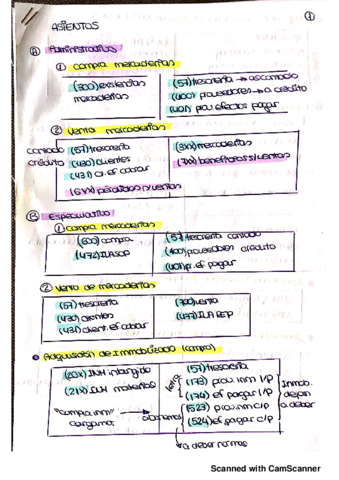 ①
ASIENTOS
Ⓐ Administrativos
① compra mercaderías
(300) existencias
mercaderías
(57) tesorería → al contado
(400) proveedores → a crédito
(401) prov efectos pagar
② Venta mercaderías
contado (57) tesorería
crédito (430) clientes
(431) cl. ef. cobrar
(6xx) pérdidas s/ventas
(3xx) mercaderías
(7xx) beneficios s/ventas
Ⓑ Especulativo
① compra mercaderías
(600) compra
(472) IVA SOP
(57) tesorería contado
(400) proveedores crédito
(401) p. ef. pagar
② Venta de mercaderías
(57) tesorería
(430) clientes
(431) client. ef cobrar
(700) venta
(477) IVA REP
Adquisición de inmobilizado (compra)
(20x) INM intangible
(21x) INM materiales
"compra inm"
cargamos
abonamos
(57) tesorería
(173) prov. inm l/p
(174) ef pagar l/p
(523) prov. inm c/p
(524) ef pagar c/p
Inmob.
dejan
a deber
a deber
Scanned with CamScanner